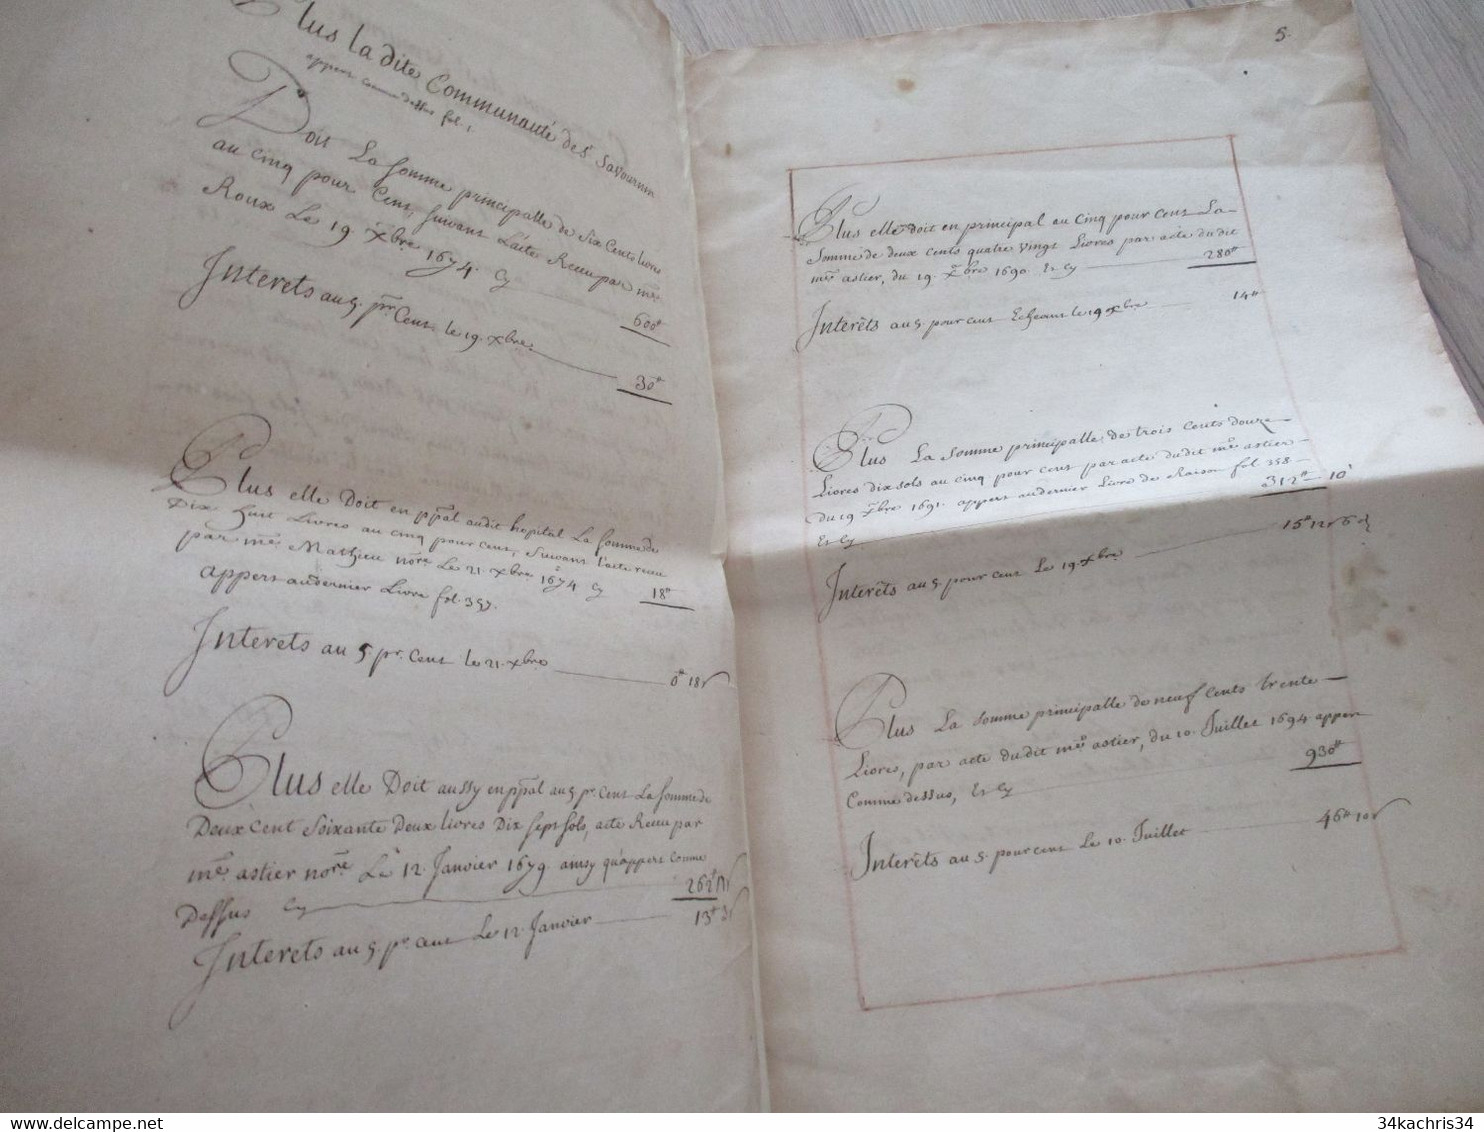 Plus la dite Communauté de St Savournin
appert comme dessus fol. 1
Doit La somme principalle de Six Cents livres
au cinq pour Cent, suivant L'acte Receu par me
Roux Le 19. xbre 1674. Cy 600#
Interets au 5. pr Cent. le 19. xbre. 30#
Plus elle Doit en ppal audit hopital La somme de
Dix huit Livres au cinq pour cent, suivant l'acte receu
par me Mathieu nore Le 21. xbre 1674 Cy 18#
appert au dernier Livre fol. 357.
Interets au 5. pr. Cent le 21. xbre 0# 18s
Plus elle Doit aussy en ppal au 5 pr Cent La somme de
Deux Cent Soixante Deux livres Dix sept sols, acte Receu par
me astier nore Le 12. Janvier 1679. ainsy qu'appert comme
Dessus Cy 262#
Interets au 5. pr cent Le 12. Janvier 13# 3s
5.
Plus elle doit en principal au Cinq pour Cent La
Somme de deux cents quatre Vingt Livres par acte du dit
me astier, du 19. xbre 1690. Et Cy 280#
Interêts au 5. pour cent Echeant le 19 xbre 14#
Plus La Somme principalle, de trois Cents douze
Livres dix sols au cinq pour cent par acte du dit me astier
du 19 xbre 1691. appert au dernier Livre de Raison fol. 358.
Et Cy 312# 10s
Interêts au 5. pour cent Le 19. xbre 15# 12s 6d
Plus La Somme principalle de neuf Cents trente
Livres, par acte du dit me astier, du 10. Juillet 1694 appert
Comme dessus, Et Cy 930#
Interêts au 5. pour cent Le 10. Juillet 46# 10s
34kachris34